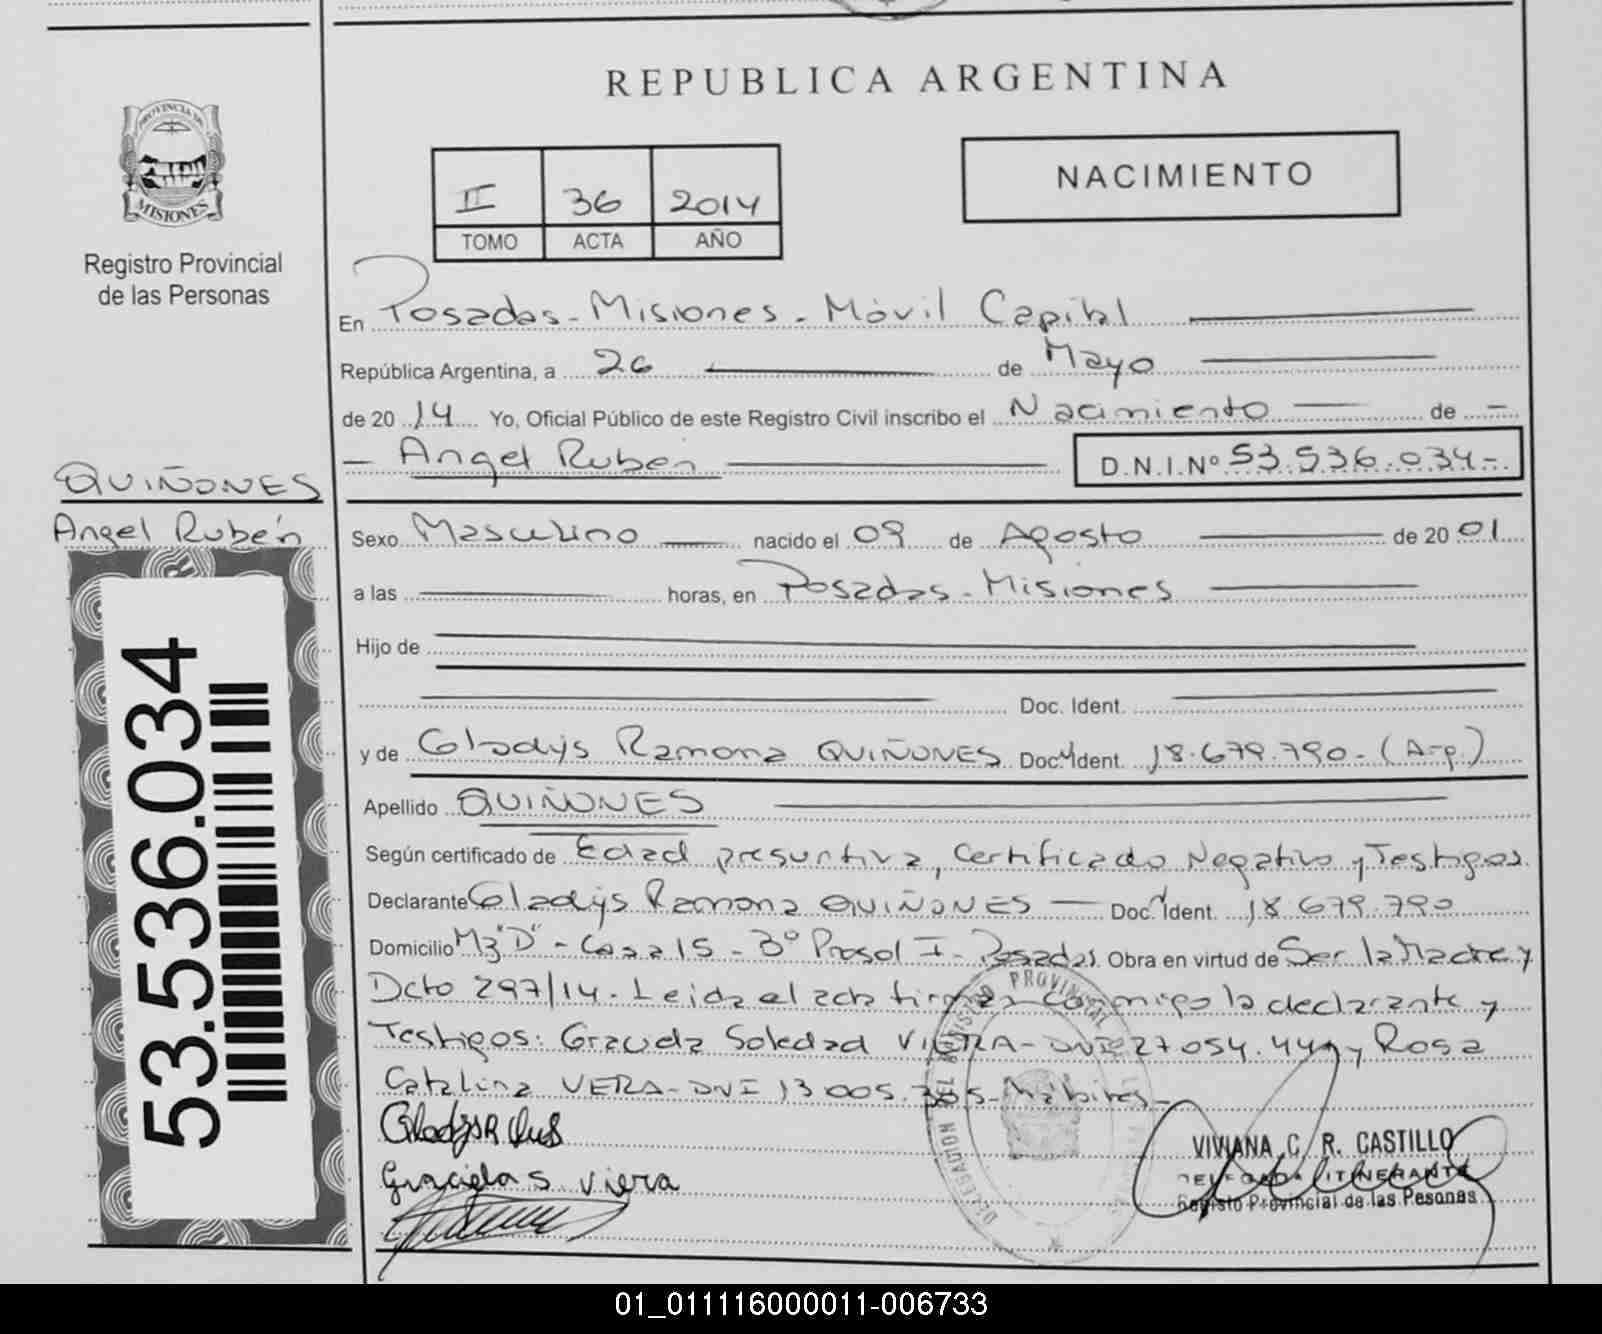 REPUBLICA ARGENTINA
PROVINCIA DE
MISIONES
Registro Provincial
de las Personas
NACIMIENTO
II 36 2014
TOMO ACTA AÑO
En Posadas - Misiones - Móvil Capital
República Argentina, a 26 de Mayo
de 2014 Yo, Oficial Público de este Registro Civil inscribo el Nacimiento de -
- Angel Rubén D.N.I.Nº 53.536.034-
QUIÑONES
Angel Rubén
53.536.034
Sexo Masculino nacido el 09 de Agosto de 2001
a las horas, en Posadas - Misiones
Hijo de
Doc. Ident.
y de Gladys Ramona QUIÑONES Doc. Ident. 18.679.790 - (Arg.)
Apellido QUIÑONES
Según certificado de Edad presuntiva, Certificado Negativo y Testigos.
Declarante Gladys Ramona QUIÑONES Doc. Ident. 18.679.790
Domicilio Mz "D" - Casa 15 - 3º Prosol I - Posadas Obra en virtud de Ser la Madre y
Dcto 297/14. Leida el acta firman conmigo la declarante y
Testigos: Soledad VIERA - DNI 27.054. y Rosa
Catalina VERA - DNI 13.005. Hábiles -
Graciela S Viera
PROVINCIAL
VIVIANA C. R. CASTILLO
DELEGADA ITINERANTE
Registro Provincial de las Pesonas
01_011116000011-006733